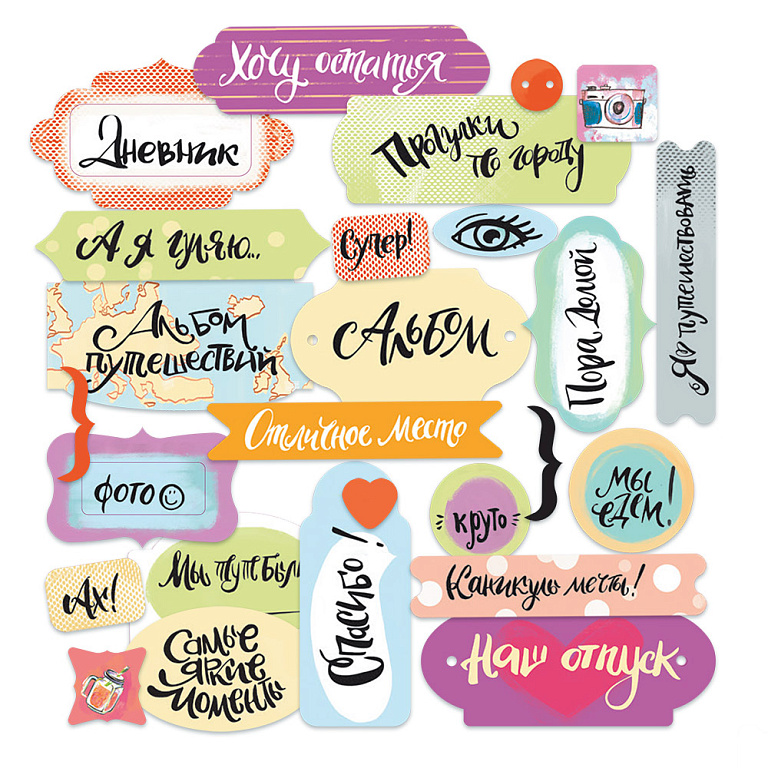 Хочу остаться
Дневник
Прогулки
по городу
А я гуляю...
Супер!
Я путешествовать
Альбом
путешествий
Альбом
Пора домой
Отличное место
фото
круто
мы
едем!
Мы тут были
Спасибо!
Каникулы мечты!
Ах!
Самые
яркие
моменты
Наш отпуск